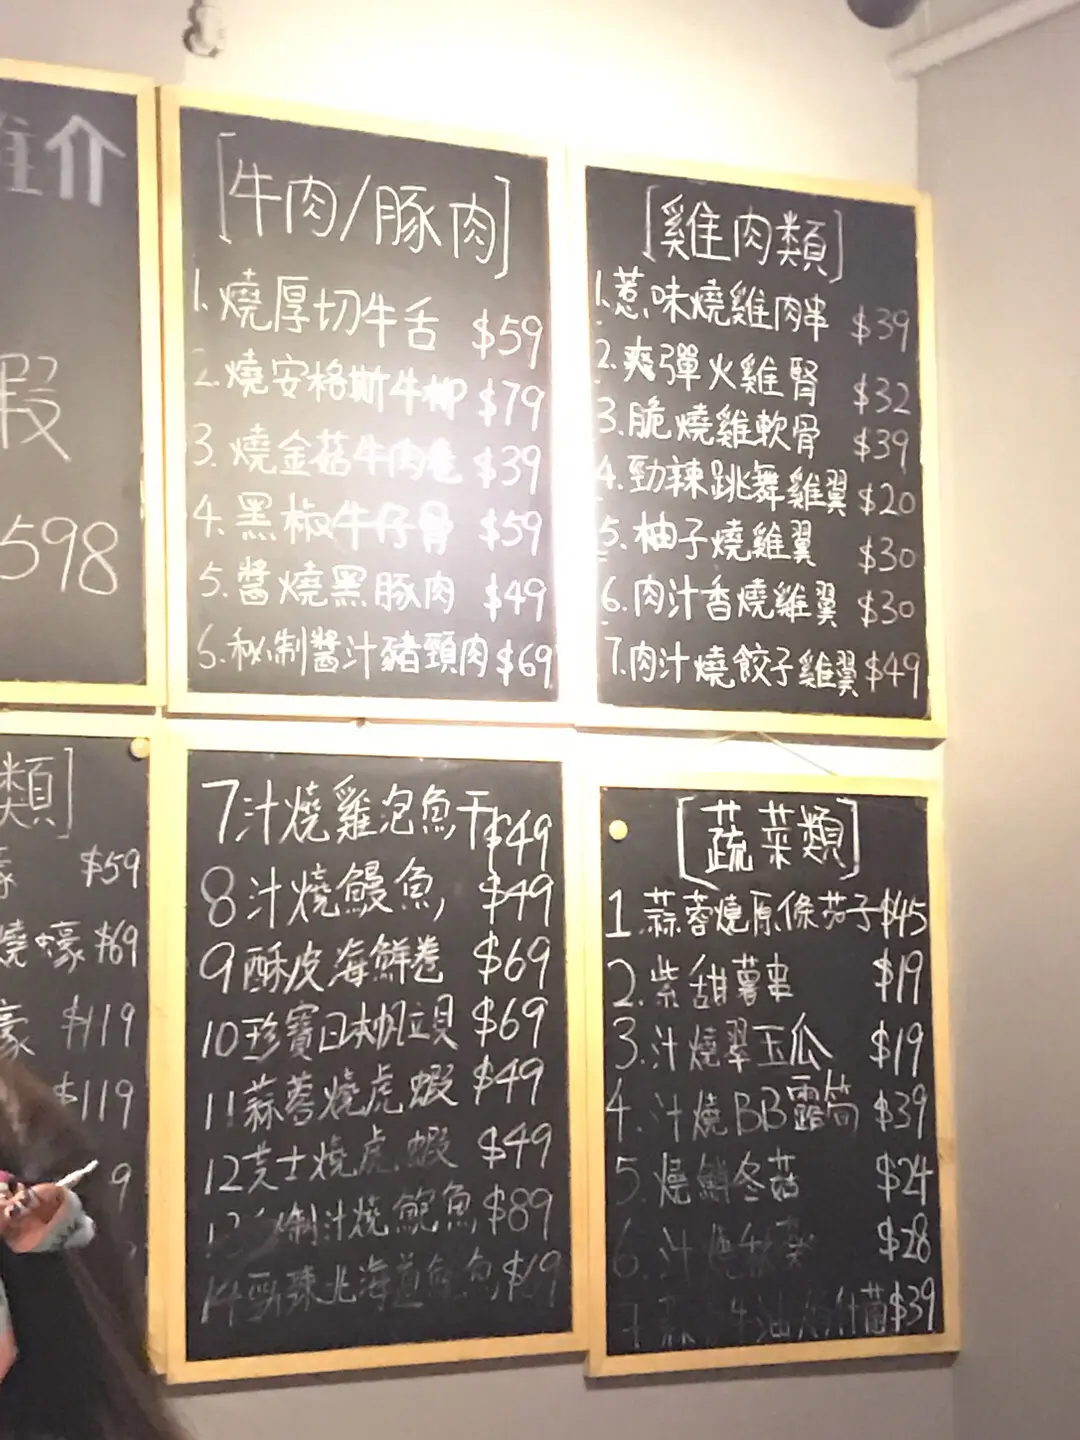 推介
蝦
598
[牛肉/豚肉]
1. 燒厚切牛舌 $59
2. 燒安格斯牛柳 $79
3. 燒金菇牛肉卷 $39
4. 黑椒牛仔骨 $59
5. 醬燒黑豚肉 $49
6. 秘制醬汁豬頸肉 $69
[雞肉類]
1. 惹味燒雞肉串 $39
2. 爽彈火雞腎 $32
3. 脆燒雞軟骨 $39
4. 勁辣跳舞雞翼 $20
5. 柚子燒雞翼 $30
6. 肉汁香燒雞翼 $30
7. 肉汁燒餃子雞翼 $49
類]
蠔 $59
燒蠔 $69
蠔 $119
$119
9
7 汁燒雞泡魚干 $49
8 汁燒鰻魚 $49
9 酥皮海鮮卷 $69
10 珍寶日本帆立貝 $69
11 蒜蓉燒虎蝦 $49
12 芝士燒虎蝦 $49
13 秘制汁燒鮑魚 $89
14 勁辣北海道魷魚 $69
[蔬菜類]
1. 蒜蓉燒原條茄子 $45
2. 紫甜薯串 $19
3. 汁燒翠玉瓜 $19
4. 汁燒BB露筍 $39
5. 燒鮮冬菇 $24
6. 汁燒秋葵 $28
7. 蒜 牛油 什菌 $39